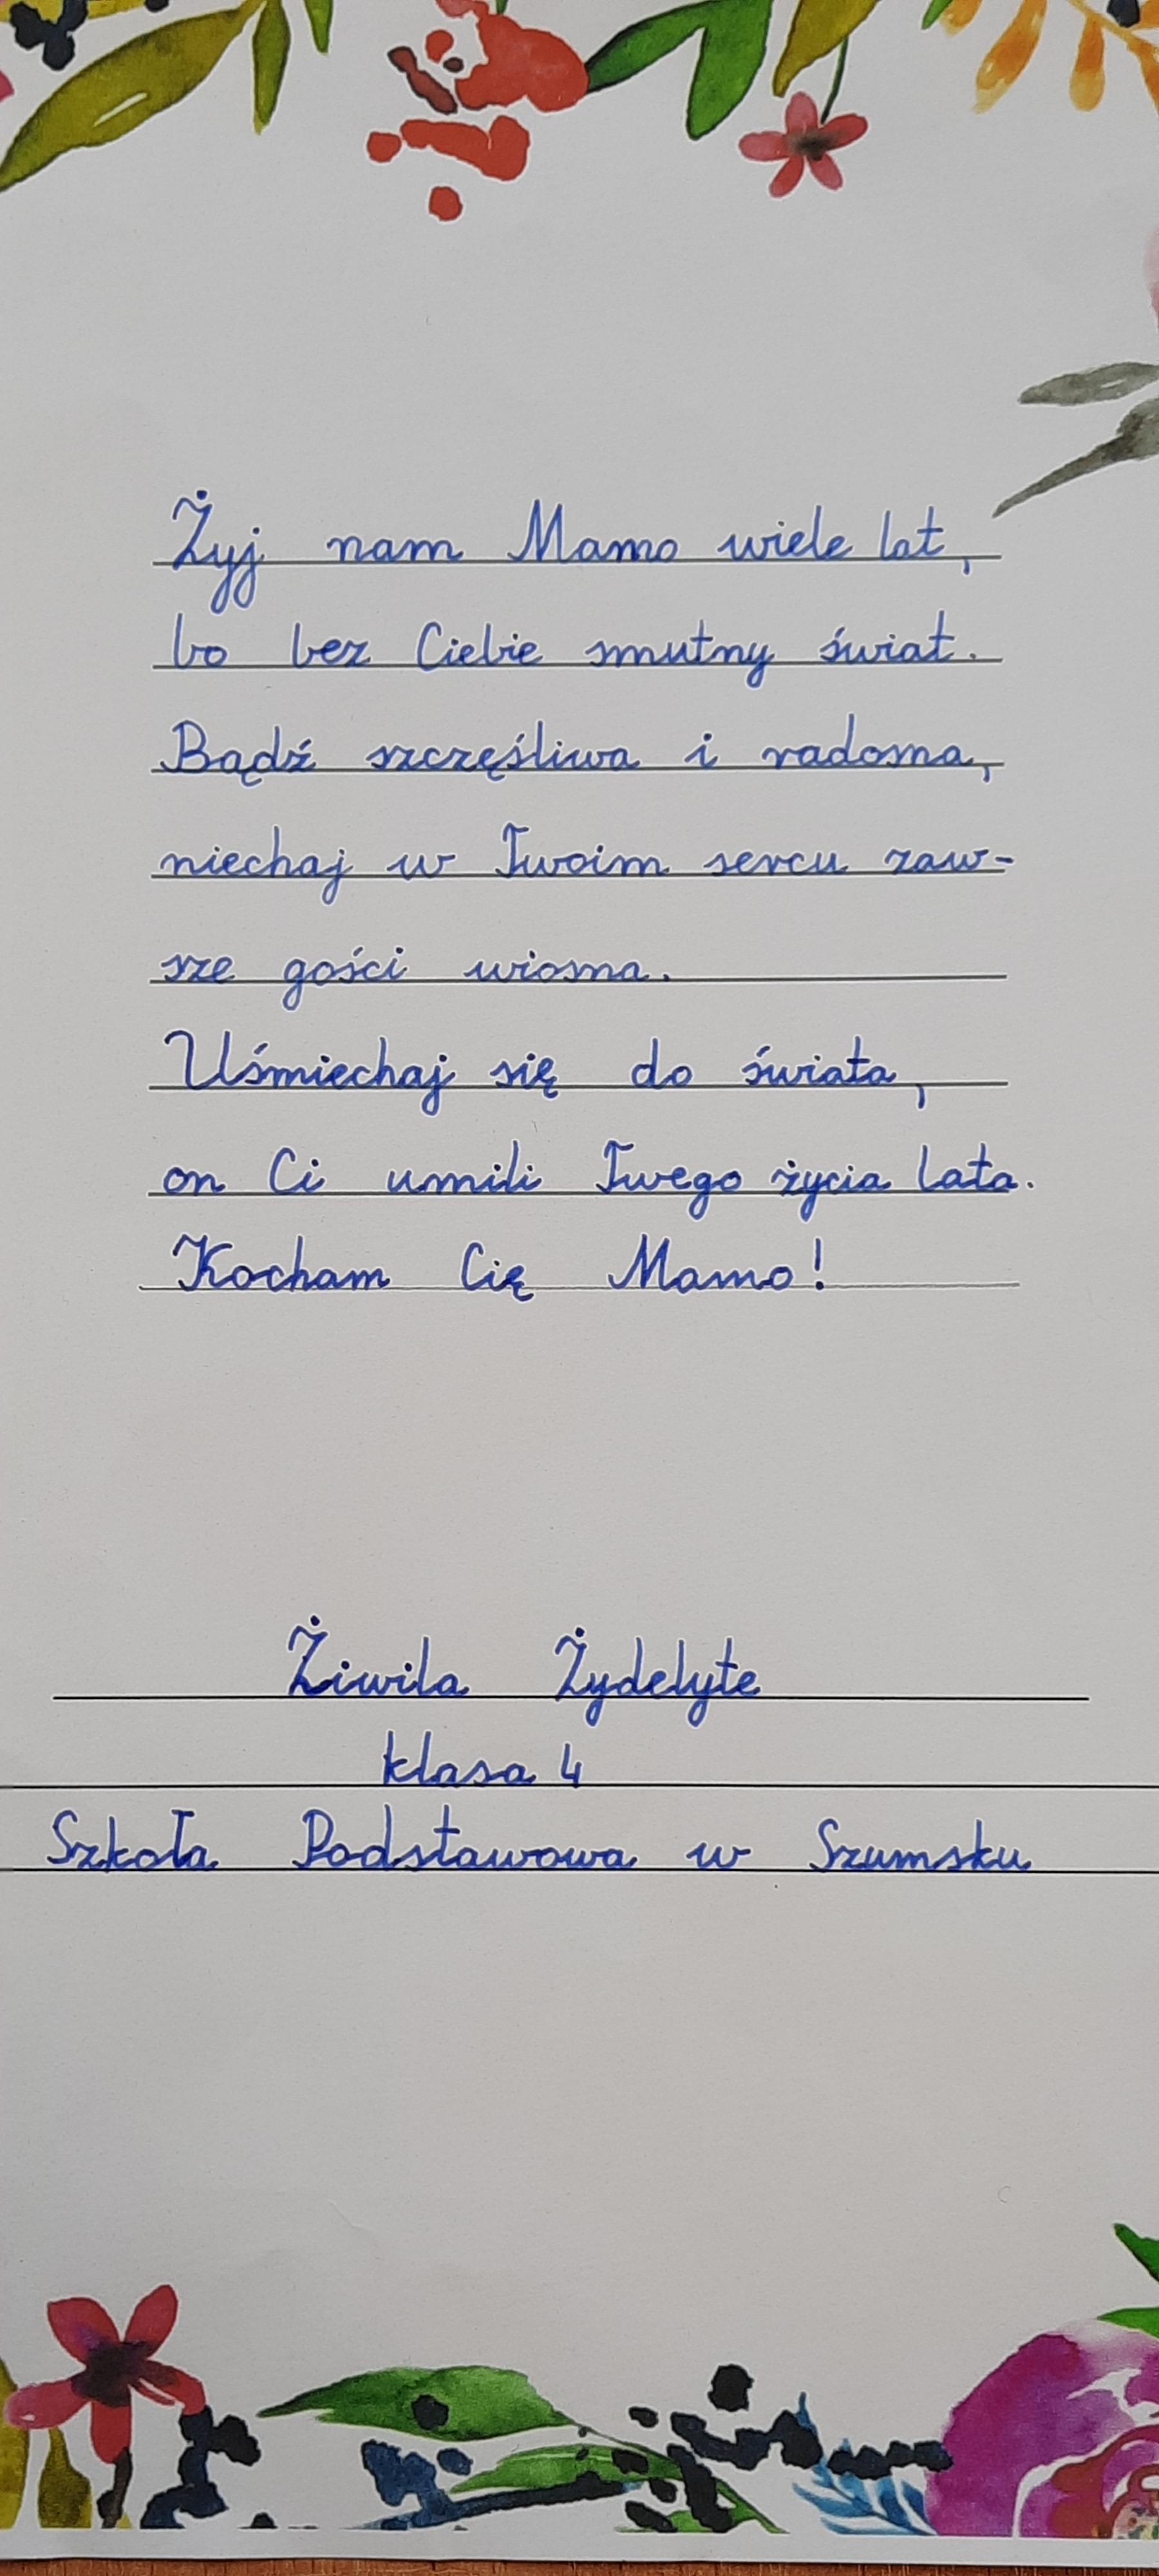 Żyj nam Mamo wiele lat,
bo bez Ciebie smutny świat.
Bądź szczęśliwa i radosna,
niechaj w Twoim sercu zaw-
sze gości wiosna.
Uśmiechaj się do świata,
on Ci umili Twego życia lata.
Kocham Cię Mamo!
Żiwila Żydelyte
klasa 4
Szkoła Podstawowa w Szumsku